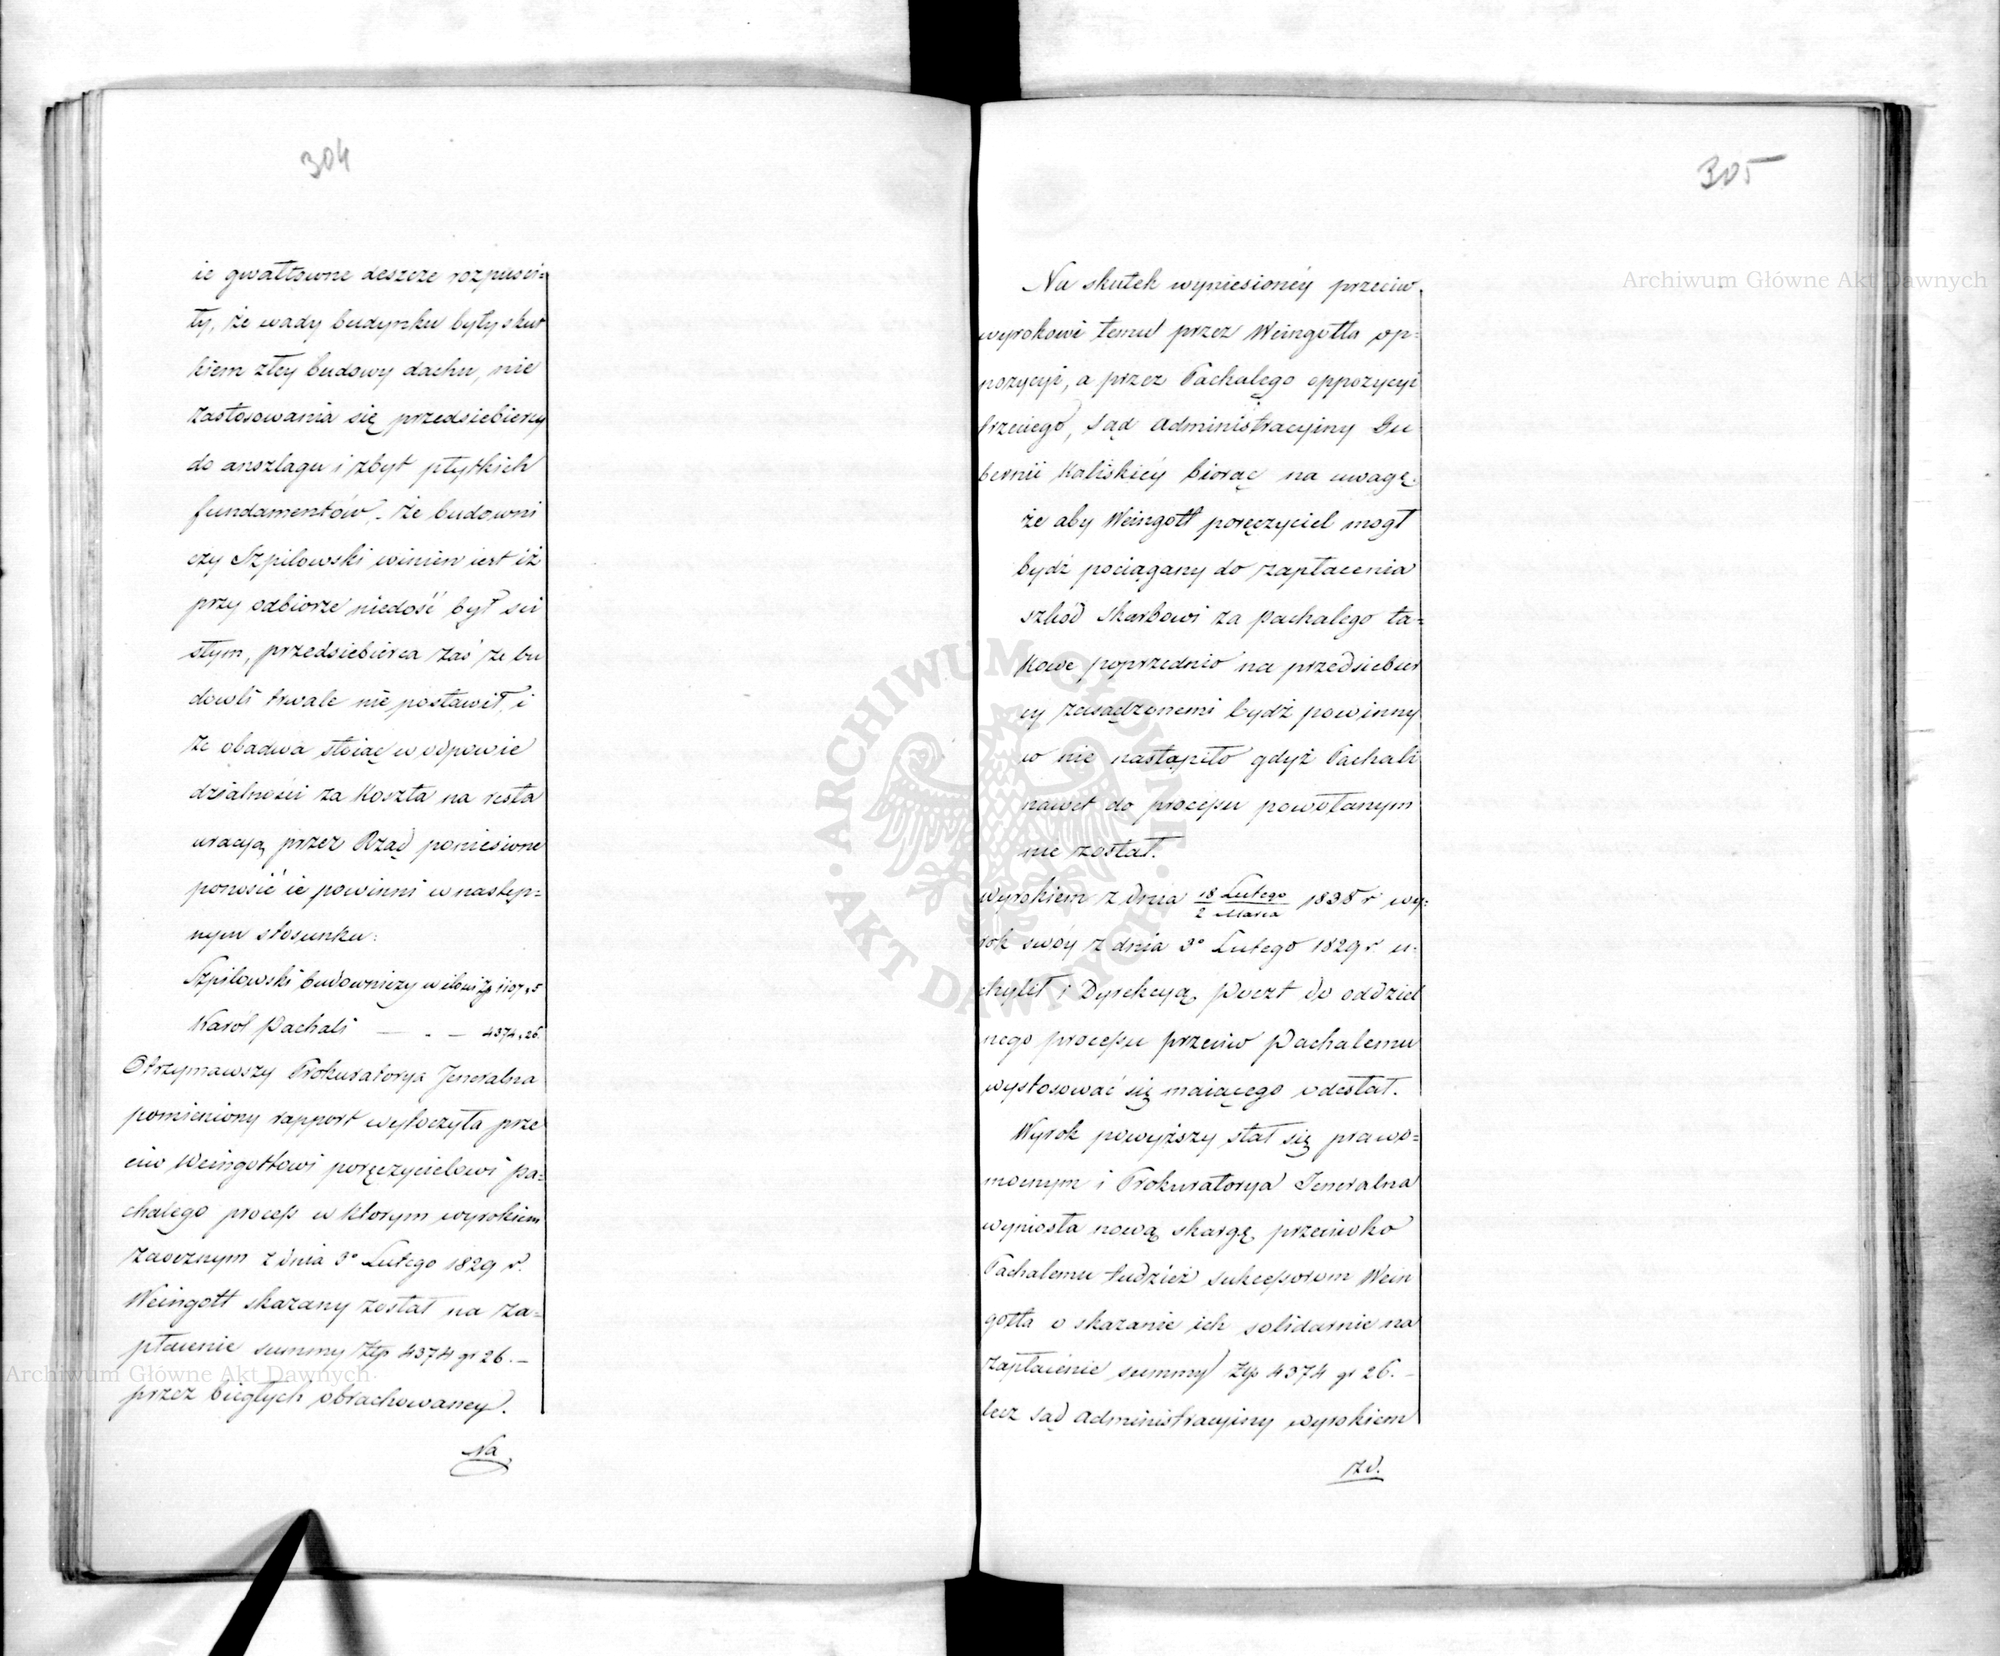 304
ie gwałtowne deszcze rozpuści=
ły, że wady budynku były skut
kiem złey budowy dachu, nie
zastosowania się przedsiebiercy
do anszlagu i zbyt płytkich
fundamentów. że budowni
czy Szpilowski winien iest iż
przy odbiorze niedość był sci
słym, przedsiebierca zaś że bu
dowli trwale nie postawił, i
że obadwa stoiąc w odpowie
dzialności za koszta na resta
uracyą przez Rząd poniesione
ponosić ie powinni w następ=
nym stosunku:
Szpilowski budowniczy w ilości Zp 1107, 5
Karol Pachali — . — 4374, 26.
Otrzymawszy Prokuratorya Jeneralna
pomieniony rapport wytoczyła prze
ciw Weingottowi poręczycielowi Pa=
chalego process w którym wyrokiem
zaocznym z dnia 3º Lutego 1829 r.
Weingott skazany został na za=
płacenie summy Złp 4374 gr 26. —
przez biegłych obrachowaney.
Na
305
Na skutek wyniesionéy przeciw
wyrokowi temu przez Weingotta op=
pozycyi, a przez Pachalego oppozycyi
trzeciego, Sąd Administracyiny Gu=
bernii Kaliskiéy biorąc na uwagę.
że aby Weingott poręczyciel mogł
bydź pociągany do zapłacenia
szkód Skarbowi za Pachalego ta=
kowe poprzednio na przedsiebier
cy zasądzonemi bydź powinny
co nie nastąpiło gdyż Pachali
nawet do processu powołanym
nie został.
wyrokiem z dnia 18 Lutego / 2 Marca 1838 r wy=
rok swóy z dnia 3º Lutego 1829 r. u=
chylił i Dyrekcyą Poczt do oddziel
nego processu przeciw Pachalemu
wystosować się maiącego odesłał.
Wyrok powyższy stał się prawo=
mocnym i Prokuratorya Jeneralna
wyniosła nową skargę przeciwko
Pachalemu tudzież sukcessorom Wein
gotta o skazanie ich solidarnie na
zapłacenie summy Złp 4374 gr 26. —
lecz Sąd Administracyiny wyrokiem
zd.
Archiwum Główne Akt Dawnych
Archiwum Główne Akt Dawnych
ARCHIWUM GŁÓWNE · AKT DAWNYCH ·